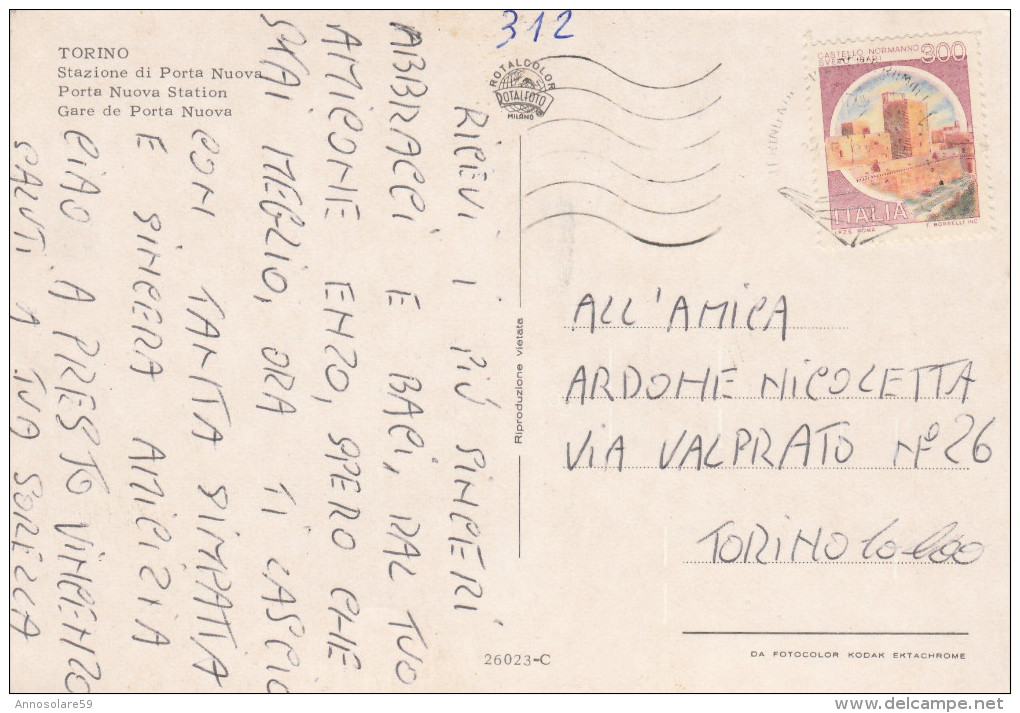 312
TORINO
Stazione di Porta Nuova
Porta Nuova Station
Gare de Porta Nuova
ROTALCOLOR
ROTALFOTO
MILANO
CASTELLO NORMANNO
SVEVO (BARI)
300
ITALIA
I.P.Z.S. ROMA
T. BORRELLI INC.
RICEVI I PIÚ SINCERI
ABBRACCI E BACI, DAL TUO
AMICONE ENZO, SPERO CHE
STAI MEGLIO, ORA TI LASCIO
CON TANTA SIMPATIA
E SINCERA AMICIZIA
CIAO A PRESTO VINCENZO
SALUTI A TUA SORELLA
Riproduzione vietata
ALL'AMICA
ARDOME NICOLETTA
VIA VALPRATO Nº 26
TORINO
26023-C
DA FOTOCOLOR KODAK EKTACHROME
Annosolare59